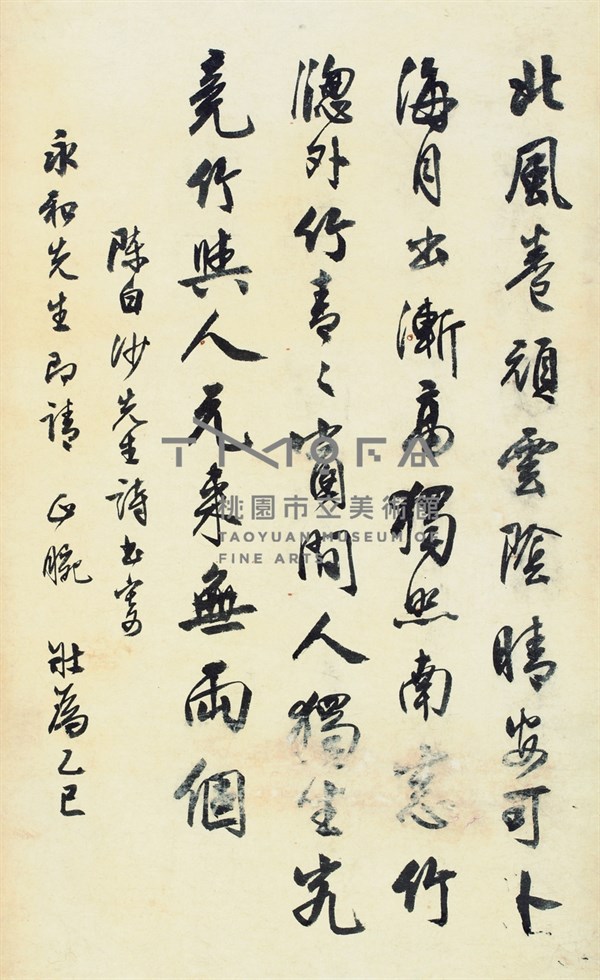 北風卷頑雲陰晴安可卜
海月出漸高獨照南窓竹
牕外竹青々窗間人獨坐究
竟竹與人元來無兩個
陳白沙先生詩書寄
永和先生即請 正腕 壯為乙巳
TMOFA
桃園市立美術館
TAOYUAN MUSEUM OF
FINE ARTS